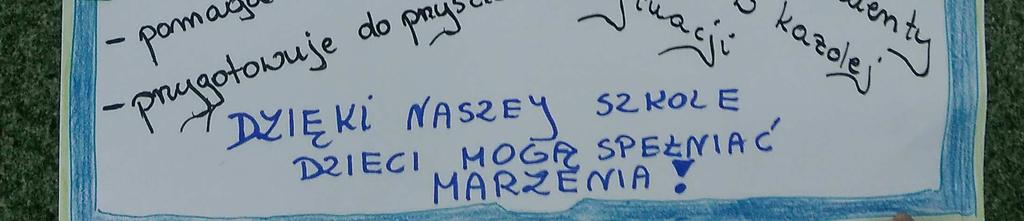 - pomaga
- przygotowuje do przysz
uacji
w każdej
menty
DZIĘKI NASZEY SZKOLE
DZIECI MOGĄ SPEŁNIAĆ
MARZENIA!